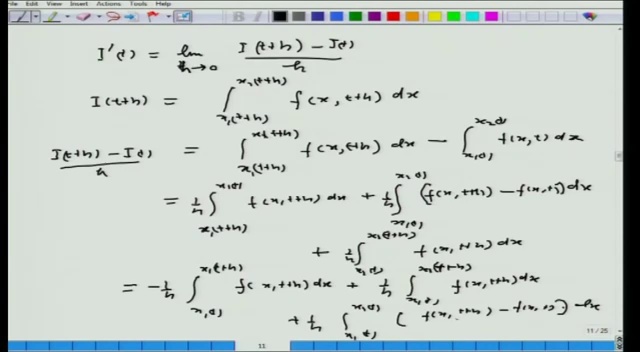 File Edit View Insert Actions Tools Help
I'(t) = lim_{h→0} \frac{I(t+h) - I(t)}{h}
I(t+h) = ∫_{x₁(t+h)}^{x₂(t+h)} f(x, t+h) dx
\frac{I(t+h) - I(t)}{h} = ∫_{x₁(t+h)}^{x₂(t+h)} f(x, t+h) dx - ∫_{x₁(t)}^{x₂(t)} f(x, t) dx
= \frac{1}{h} ∫_{x₁(t+h)}^{x₁(t)} f(x, t+h) dx + \frac{1}{h} ∫_{x₁(t)}^{x₂(t)} (f(x, t+h) - f(x, t)) dx
+ \frac{1}{h} ∫_{x₂(t)}^{x₂(t+h)} f(x, t+h) dx
= -\frac{1}{h} ∫_{x₁(t)}^{x₁(t+h)} f(x, t+h) dx + \frac{1}{h} ∫_{x₂(t)}^{x₂(t+h)} f(x, t+h) dx
+ \frac{1}{h} ∫_{x₁(t)}^{x₂(t)} (f(x, t+h) - f(x, t)) dx
11 / 25
11